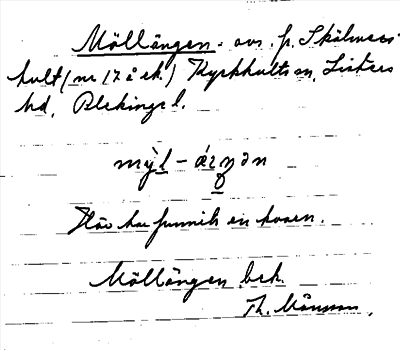 Möllängen - avs. fr. Skälmers-
hult (nr 17 å ek.) Kyrkhults sn, Listers
hd, Blekinge l.
mỳl - áꞃŋən
Här har funnits en kvarn.
Möllängen bek.
Th. Månsson.